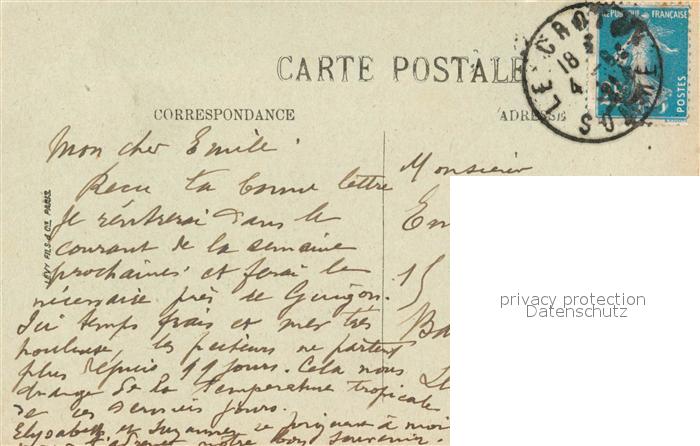 RÉPUBLIQUE FRANÇAISE
POSTES
LE CROTOY
18
4
SOMME
CARTE POSTALE
CORRESPONDANCE
ADRESSE
LÉVY FILS & Cie PARIS
Mon cher Emile
Recu ta bonne lettre
Je rentrerai dans le
courant de la semaine
prochaine et ferai le
nécessaire près de Guigon.
Ici temps frais et mer très
houleuse, les pêcheurs ne partent
plus depuis 11 jours. Cela nous
change de la température tropicale
de ces derniers jours.
Elysabeth et Suzanne se joignent à moi
notre bon souvenir.
Monsieur
Em
15
Ba
privacy protection
Datenschutz